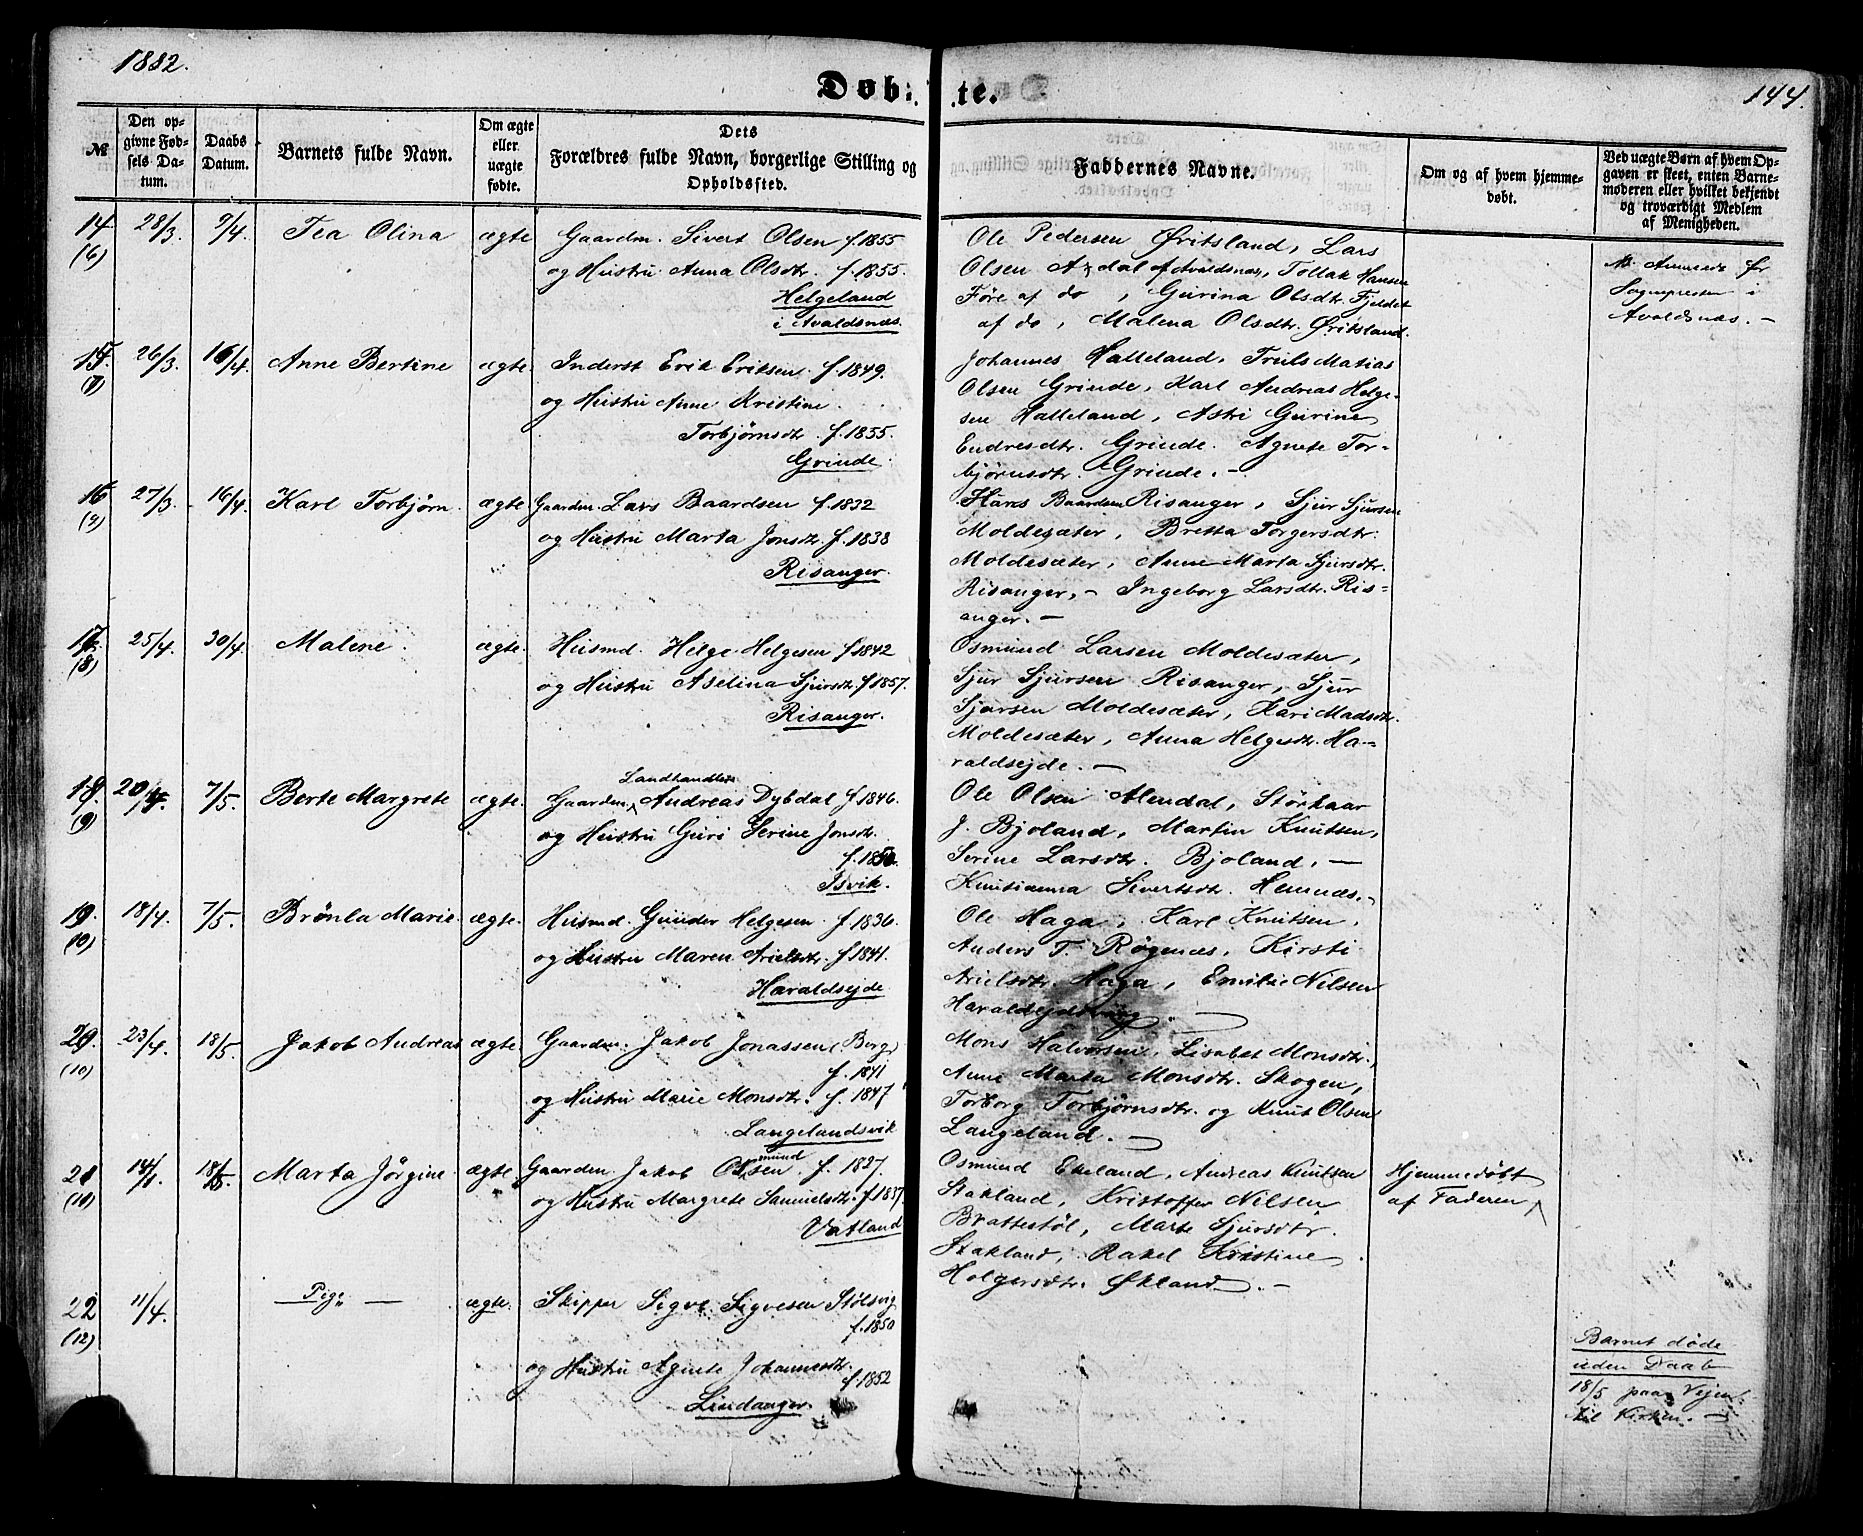 1882.
Døbte.
144.
№
Den opgivne Fødsels Datum.
Daabs Datum.
Barnets fulde Navn.
Om ægte eller uægte fødte.
Dets Forældres fulde Navn, borgerlige Stilling og Opholdssted.
Faddernes Navne.
Om og af hvem hjemmedøbt.
Ved uægte Børn af hvem Opgaven er skeet, enten Barnemoderen eller hvilket bekjendt og troværdigt Medlem af Menigheden.
14. 28/3. 9/4. Tea Olina ægte Gaardm. Sivert Olsen f. 1855
(6) og Hustru Anna Olsdtr. f. 1855.
Helgeland
i Avaldsnæs.
Ole Pedersen Øritsland, Lars
Olsen af Avaldsnæs, Tollak Hansen
Føre af do, Gurina Olsdtr. Fjeldet
af do, Malena Olsdtr. Øritsland.
Sognepresten i
Avaldsnæs. –
15. 26/3. 16/4. Anne Bertine ægte. Inderst Erik Eriksen f. 1849.
(7) og Hustru Anne Kristine
Torbjørnsdtr. f. 1855.
Grinde.
Johannes Halleland, Truls Matias
Olsen Grinde, Karl Andreas Helge-
sen Halleland, Astri Gurine
Endresdtr. Grinde. Agnete Tor-
bjørnsdtr. Grinde. –
16 27/3. 16/4. Karl Torbjørn. ægte Gaardm. Lars Baardsen f. 1832
og Hustru Marta Jonsdtr. f. 1838
Risanger.
Hans Baardsen Risanger, Sjur Sjursen
Moldesæter, Bretta Torgersdtr.
Moldesæter, Anne Marta Sjursdtr.
Risanger, – Ingeborg Larsdtr. Ris-
anger. –
17. 25/4. 30/4. Malene. ægte. Husmd. Helge Helgesen f 1842
(8) og Hustru Aselina Sjursdtr. f 1857.
Risanger.
Osmund Larsen Moldesæter,
Sjur Sjursen Risanger, Sjur
Sjursen Moldesæter, Kari Madsdtr.
Moldesæter, Anna Helgesdtr. Ha-
raldsejde. –
18. 7/5. Berte Margrete ægte. Gaardm. Landhandler Andreas Dybdal f 1846.
(9) og Hustru Guri Serine Jonsdtr.
f. 1850.
Isvik.
Ole Olsen Alendal, Størkaar
J. Bjoland, Martin Knutsen,
Serine Larsdtr. Bjoland, –
Knutianna Sivertsdtr. Hemnæs. –
19. 18/4. 7/5. Brønla Marie. ægte. Husmd. Gunder Helgesen f. 1836.
(10) og Hustru Maren Arielsdtr. f 1841.
Haraldsejde
Ole Haga, Karl Knutsen,
Anders T. Røgenæs, Kirsti
Arielsdtr. Haga, Emilie Nilsen
20. 23/4. 18/5. Jakob Andreas ægte. Gaardm. Jakob Jonassen (Berg)
(10) f. 1841
og Hustru Marie Monsdtr. f. 1847
Langelandsvik
Mons Halvorsen, Lisabet Monsdtr.,
Anne Marta Monsdtr. Skogen,
Torborg Torbjørnsdtr. og Knut Olsen
Langeland. –
21 14/1. Marta Jørgine. ægte Gaardm. Jakob Osmundsen f. 1827.
(11) og Hustru Margrete Samuelsdtr. f 1837.
Vatland
Osmund Ekeland, Andreas Knutsen
Stakland, Kristoffer Nilsen
Brattestøl, Marte Sjursdtr.
Stakland, Rakel Kristine
Holgersdtr. Økland. –
Hjemmedøbt
af Faderen
22 11/4. Pige – ægte. Skipper Sigve Sigvesen Stølsvig
(12) f. 1850
og Hustru Agnete Johannesdtr.
f. 1852
Lindanger.
Barnet døde
uden Daab
18/5 paa Vejen
til Kirken. –